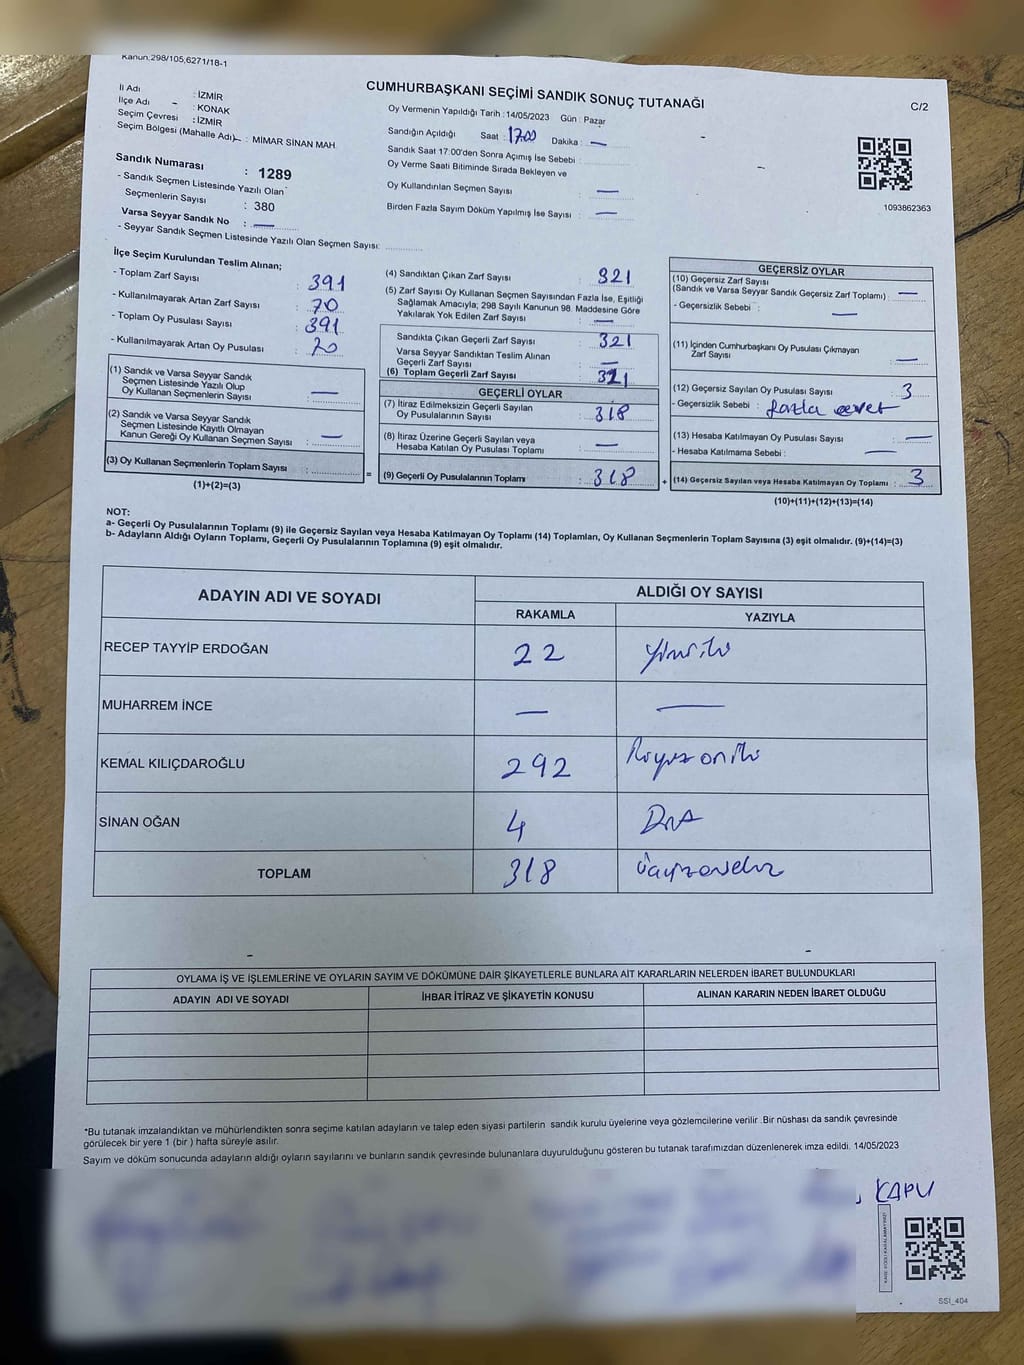 Kanun:298/105,6271/18-1
CUMHURBAŞKANI SEÇİMİ SANDIK SONUÇ TUTANAĞI
C/2
İl Adı : İZMİR
İlçe Adı : KONAK
Seçim Çevresi : İZMİR
Seçim Bölgesi (Mahalle Adı) : MİMAR SİNAN MAH.
Sandık Numarası : 1289
- Sandık Seçmen Listesinde Yazılı Olan
Seçmenlerin Sayısı : 380
Varsa Seyyar Sandık No : —
- Seyyar Sandık Seçmen Listesinde Yazılı Olan Seçmen Sayısı:
Oy Vermenin Yapıldığı Tarih :14/05/2023 Gün : Pazar
Sandığın Açıldığı Saat : 17:00 Dakika : —
Sandık Saat 17:00'den Sonra Açımış İse Sebebi :
Oy Verme Saati Bitiminde Sırada Bekleyen ve
Oy Kullandırılan Seçmen Sayısı : —
Birden Fazla Sayım Döküm Yapılmış İse Sayısı : —
1093862363
İlçe Seçim Kurulundan Teslim Alınan;
- Toplam Zarf Sayısı : 391
- Kullanılmayarak Artan Zarf Sayısı : 70
- Toplam Oy Pusulası Sayısı : 391
- Kullanılmayarak Artan Oy Pusulası : 70
(1) Sandık ve Varsa Seyyar Sandık
Seçmen Listesinde Yazılı Olup
Oy Kullanan Seçmenlerin Sayısı : —
(2) Sandık ve Varsa Seyyar Sandık
Seçmen Listesinde Kayıtlı Olmayan
Kanun Gereği Oy Kullanan Seçmen Sayısı : —
(3) Oy Kullanan Seçmenlerin Toplam Sayısı :
(1)+(2)=(3)
=
(4) Sandıktan Çıkan Zarf Sayısı : 321
(5) Zarf Sayısı Oy Kullanan Seçmen Sayısından Fazla İse, Eşitliği
Sağlamak Amacıyla; 298 Sayılı Kanunun 98. Maddesine Göre
Yakılarak Yok Edilen Zarf Sayısı : —
Sandıkta Çıkan Geçerli Zarf Sayısı : 321
Varsa Seyyar Sandıktan Teslim Alınan
Geçerli Zarf Sayısı : —
(6) Toplam Geçerli Zarf Sayısı : 321
GEÇERLİ OYLAR
(7) İtiraz Edilmeksizin Geçerli Sayılan
Oy Pusulalarının Sayısı : 318
(8) İtiraz Üzerine Geçerli Sayılan veya
Hesaba Katılan Oy Pusulası Toplamı : —
(9) Geçerli Oy Pusulalarının Toplamı : 318
+
GEÇERSİZ OYLAR
(10) Geçersiz Zarf Sayısı
(Sandık ve Varsa Seyyar Sandık Geçersiz Zarf Toplamı) : —
- Geçersizlik Sebebi : —
(11) İçinden Cumhurbaşkanı Oy Pusulası Çıkmayan
Zarf Sayısı : —
(12) Geçersiz Sayılan Oy Pusulası Sayısı : 3
- Geçersizlik Sebebi : fazla evet
(13) Hesaba Katılmayan Oy Pusulası Sayısı : —
- Hesaba Katılmama Sebebi : —
(14) Geçersiz Sayılan veya Hesaba Katılmayan Oy Toplamı : 3
(10)+(11)+(12)+(13)=(14)
NOT:
a- Geçerli Oy Pusulalarının Toplamı (9) ile Geçersiz Sayılan veya Hesaba Katılmayan Oy Toplamı (14) Toplamları, Oy Kullanan Seçmenlerin Toplam Sayısına (3) eşit olmalıdır. (9)+(14)=(3)
b- Adayların Aldığı Oyların Toplamı, Geçerli Oy Pusulalarının Toplamına (9) eşit olmalıdır.
ADAYIN ADI VE SOYADI
ALDIĞI OY SAYISI
RAKAMLA YAZIYLA
RECEP TAYYİP ERDOĞAN 22
MUHARREM İNCE — —
KEMAL KILIÇDAROĞLU 292
SİNAN OĞAN 4
TOPLAM 318
OYLAMA İŞ VE İŞLEMLERİNE VE OYLARIN SAYIM VE DÖKÜMÜNE DAİR ŞİKAYETLERLE BUNLARA AİT KARARLARIN NELERDEN İBARET BULUNDUKLARI
ADAYIN ADI VE SOYADI İHBAR İTİRAZ VE ŞİKAYETİN KONUSU ALINAN KARARIN NEDEN İBARET OLDUĞU
*Bu tutanak imzalandıktan ve mühürlendikten sonra seçime katılan adayların ve talep eden siyasi partilerin sandık kurulu üyelerine veya gözlemcilerine verilir .Bir nüshası da sandık çevresinde
görülecek bir yere 1 (bir ) hafta süreyle asılır.
Sayım ve döküm sonucunda adayların aldığı oyların sayılarını ve bunların sandık çevresinde bulunanlara duyurulduğunu gösteren bu tutanak tarafımızdan düzenlenerek imza edildi. 14/05/2023
KAPU
SSI_404